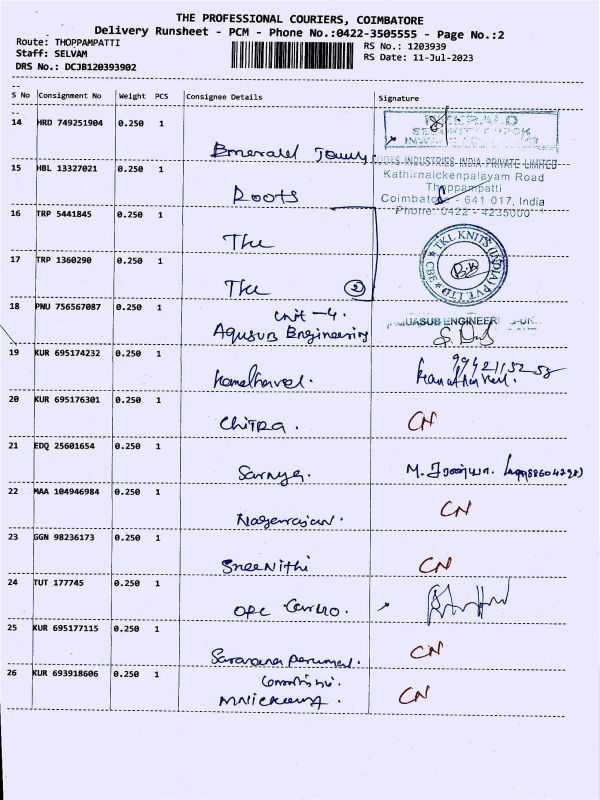 THE PROFESSIONAL COURIERS, COIMBATORE
Delivery Runsheet - PCM - Phone No.:0422-3505555 - Page No.:2
Route: THOPPAMPATTI
Staff: SELVAM
DRS No.: DCJB120393902
RS No.: 1203939
RS Date: 11-Jul-2023
S No Consignment No Weight PCS Consignee Details Signature
14 HRD 749251904 0.250 1
EMERALD
Emerald
INDUSTRIES INDIA PRIVATE LIMITED
15 HBL 13327021 0.250 1
Kathirnaickenpalayam Road
Thoppampatti
Roots
Coimbatore - 641 017, India
Phone: 0422 - 4235000
16 TRP 5441845 0.250 1
TKL KNITS (INDIA) PVT. LTD
CBE
B.K
17 TRP 1360290 0.250 1
2
18 PNU 756567087 0.250 1
Unit - 4.
AQUASUB ENGINEERI
Aqusub Engineering
19 KUR 695174232 0.250 1
Kamalharvel.
20 KUR 695176301 0.250 1
Chitra. CN
21 EDQ 25601654 0.250 1
Sarnya.
22 MAA 104946984 0.250 1
CN
Nagenrajan.
23 GGN 98236173 0.250 1
SreeNithi CN
24 TUT 177745 0.250 1
25 KUR 695177115 0.250 1
CN
Saravana perumal.
26 KUR 693918606 0.250 1
CN